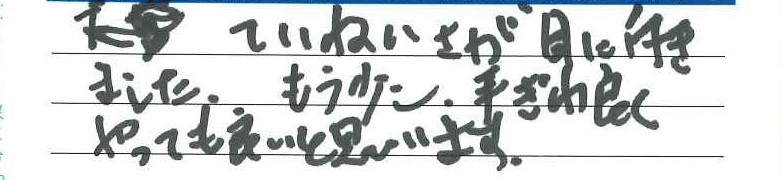 大変 ていねいさが目に付き
ました。もう少し、手ぎわ良く
やっても良いと思います。